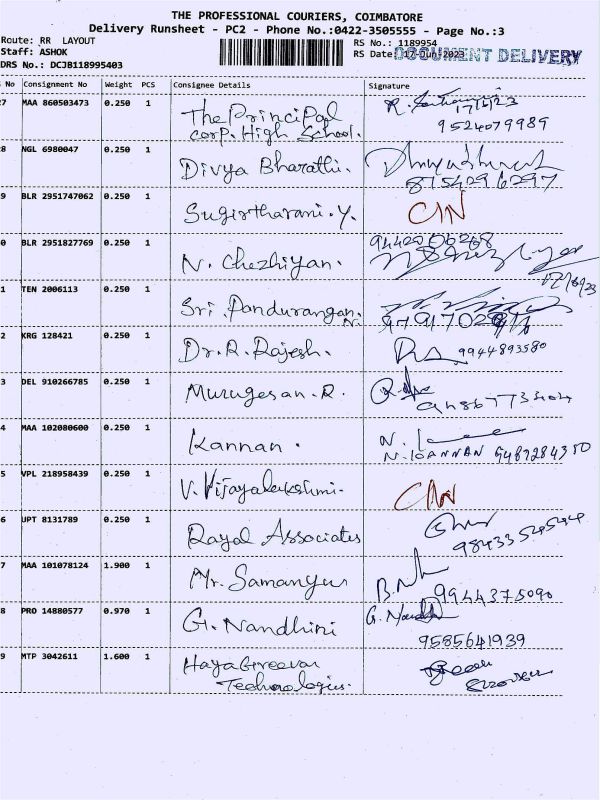 THE PROFESSIONAL COURIERS, COIMBATORE
Delivery Runsheet - PC2 - Phone No.:0422-3505555 - Page No.:3
Route: RR LAYOUT
RS No.: 1189954
Staff: ASHOK
RS Date: 17-Jun-2023
DOCUMENT DELIVERY
DRS No.: DCJB118995403
No Consignment No Weight PCS Consignee Details Signature
7 MAA 860503473 0.250 1 The Principal 17/6/23
Corp. High School. 9524079989
8 NGL 6980047 0.250 1 Divya Bharathi.
8754296297
9 BLR 2951747062 0.250 1 Sugirtharani. Y.
0 BLR 2951827769 0.250 1 N. Chezhiyan.
17/6/23
1 TEN 2006113 0.250 1 Sri. Pandurangan.
N.
2 KRG 128421 0.250 1 Dr. R. Rajesh. 9944893580
3 DEL 910266785 0.250 1 Murugesan. R.
4 MAA 102080600 0.250 1 Kannan.
N. KANNAN 9487284350
5 VPL 218958439 0.250 1 V. Vijayalakshmi.
6 UPT 8131789 0.250 1 Rayal Associates
7 MAA 101078124 1.900 1 Mr.
9944375090
8 PRO 14880577 0.970 1 G. Nandhini G.
9585641939
9 MTP 3042611 1.600 1 Hayagreevar
Technologies.